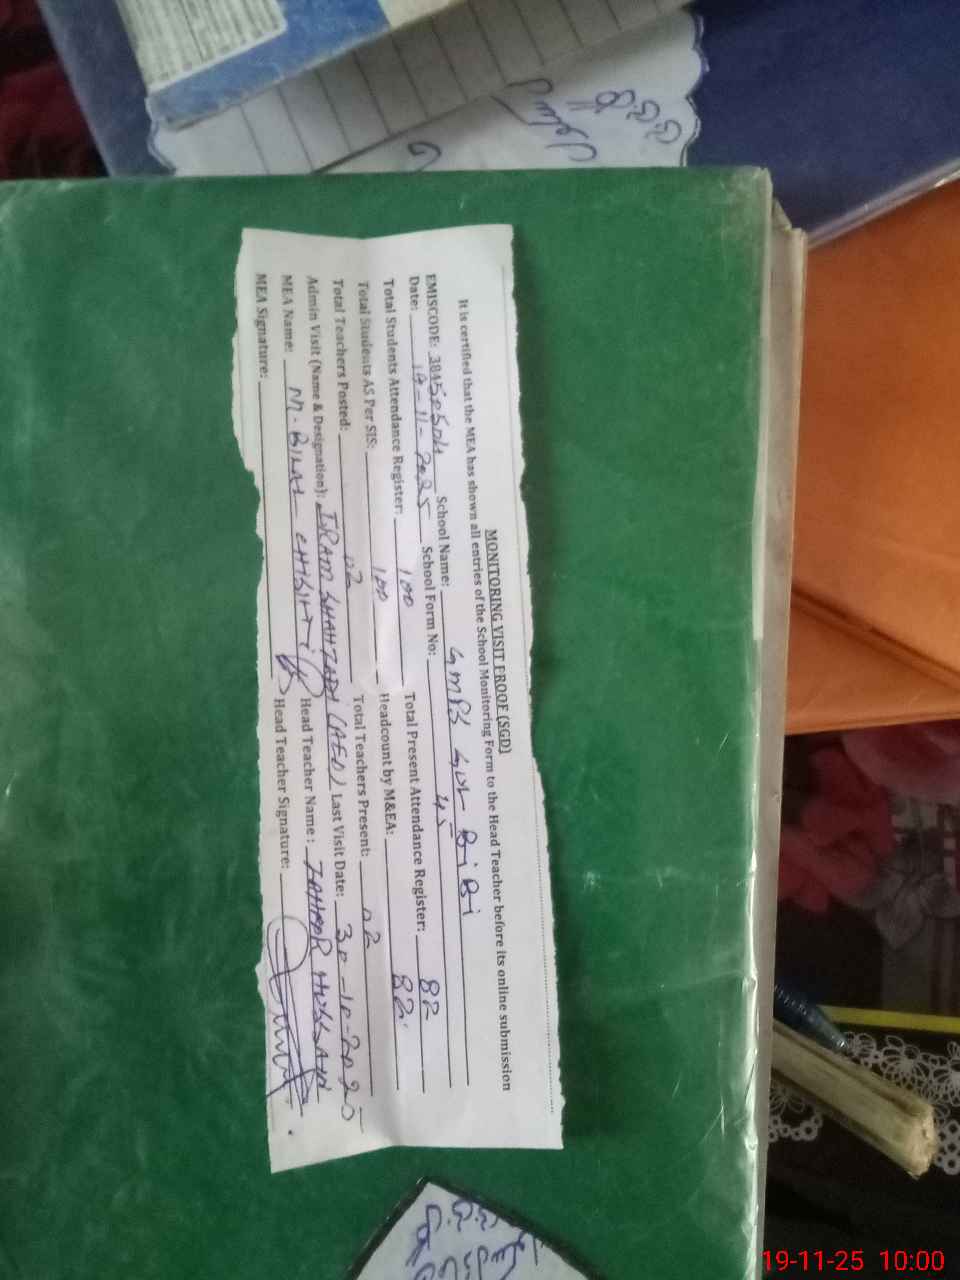 MONITORING VISIT PROOF (SGD)
It is certified that the MEA has shown all entries of the School Monitoring Form to the Head Teacher before its online submission
EMISCODE: School Name: GMPS GUL Bi Bi
Date: 19-11-2025 School Form No: 45
Total Students Attendance Register: 100 Total Present Attendance Register: 82
Total Students AS Per SIS: 100 Headcount by M&EA: 82
Total Teachers Posted: 02 Total Teachers Present: 02
Admin Visit (Name & Designation): IRAM SHAHZADI (AEO) Last Visit Date: 30-10-2025
MEA Name: M. BILAL CHISHTI Head Teacher Name: ZAHOOR HUSSAIN
MEA Signature: Head Teacher Signature:
19-11-25 10:00